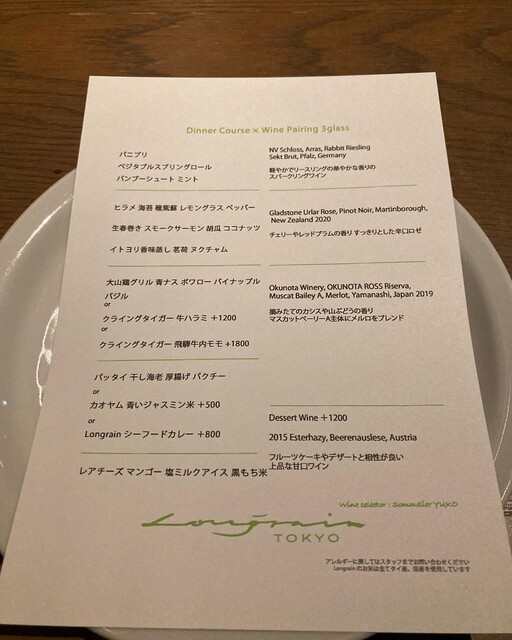 Dinner Course × Wine Pairing 3glass
パニプリ
ベジタブルスプリングロール
バンブーシュート ミント
NV Schloss, Arras, Rabbit Riesling
Sekt Brut, Pfalz, Germany
軽やかでリースリングの華やかな香りの
スパークリングワイン
ヒラメ 海苔 穂紫蘇 レモングラス ペッパー
生春巻き スモークサーモン 胡瓜 ココナッツ
イトヨリ香味蒸し 茗荷 ヌクチャム
Gladstone Urlar Rose, Pinot Noir, Martinborough,
New Zealand 2020
チェリーやレッドプラムの香り すっきりとした辛口ロゼ
大山鶏グリル 青ナス ポワロー パイナップル
バジル
or
クライングタイガー 牛ハラミ +1200
or
クライングタイガー 飛騨牛内モモ +1800
Okunota Winery, OKUNOTA ROSS Riserva,
Muscat Bailey A, Merlot, Yamanashi, Japan 2019
摘みたてのカシスや山ぶどうの香り
マスカットベーリーA主体にメルロをブレンド
パッタイ 干し海老 厚揚げ パクチー
or
カオヤム 青いジャスミン米 +500
or
Longrain シーフードカレー +800
Dessert Wine +1200
2015 Esterhazy, Beerenauslese, Austria
フルーツケーキやデザートと相性が良い
上品な甘口ワイン
レアチーズ マンゴー 塩ミルクアイス 黒もち米
Wine selector : Sommelier YUKO
Longrain
TOKYO
アレルギーに関してはスタッフまでお問い合わせください
Longrain のお米は全てタイ産、国産を使用しています